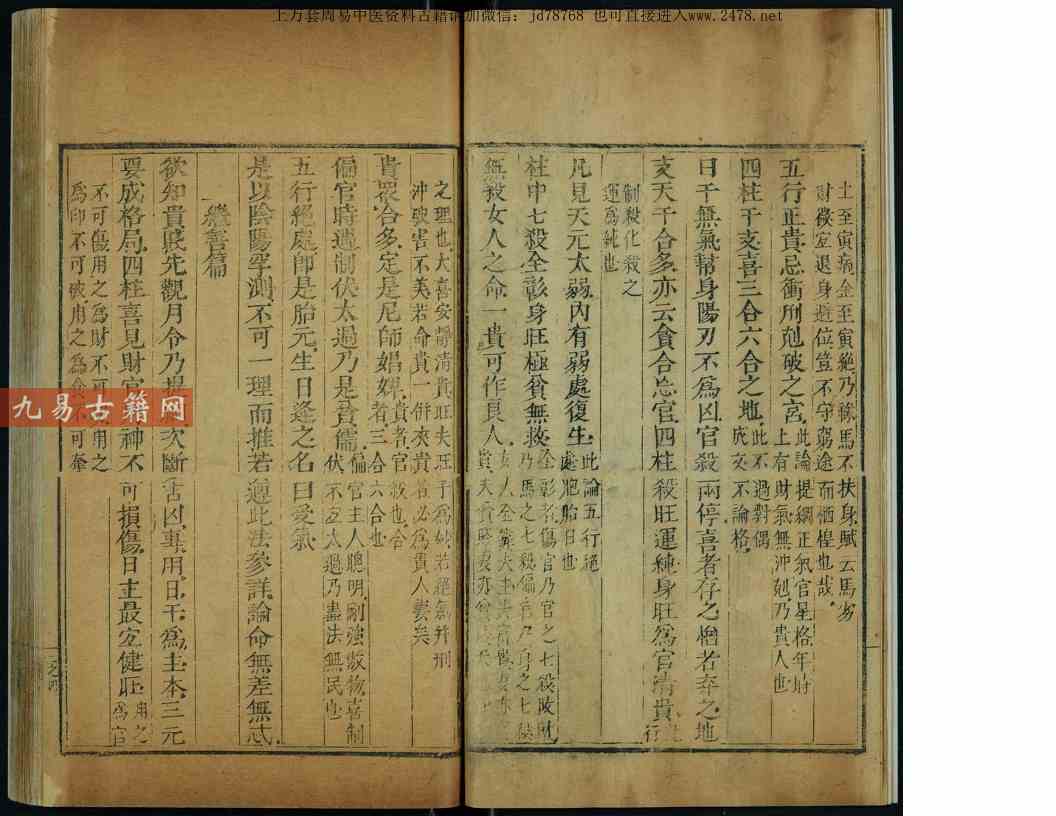 上万套周易中医资料古籍请加微信：jd78768 也可直接进入www.2478.net
土至寅病金至寅絶乃祿馬不扶身賦云馬劣
財微宜退身避位豈不守窮途而恓惶也哉
五行正貴忌衝刑剋破之宮此論提綱正氣官星格年時
上有財氣無沖剋乃貴人也
四柱干支喜三合六合之地此不過對偶
庑文不論格
日干無氣幫身陽刃不為凶官殺兩停喜者存之憎者弃之地
支天干合多亦云貪合忘官四柱殺旺運純身旺為官清貴
制殺化殺之
運為純也
凡見天元太弱內有弱處復生此論五行絕
處胞胎日也
柱中七殺全彰身旺極貧無救全彰者傷官乃官之七殺
無殺女人之命一貴可作良人
之理也大喜安靜清貴旺夫旺子為妙若絕無併刑
沖破害不美若命貴一併夾貴者必為貴人妻矣
貴眾合多定是尼師娼婢貴者官殺也合
者三合六合也
偏官時遇制伏太過乃是貧儒偏官主人聰明剛強傲物喜制
伏不宜太過乃盡法無民也
五行絕處即是胎元生日逢之名曰受氣
是以陰陽罕測不可一理而推若遵此法參詳論命無差無忒
繼善篇
欲知貴賤先觀月令乃提 次斷吉凶專用日干為主本三元
要成格局四柱喜見財官 神不可損傷日主最宜健旺用之
為官
不可傷用之為財不可 用之
為印不可破用之為食不可奪
九易古籍网